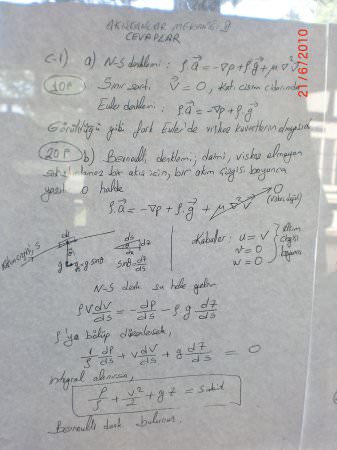 AKIŞKANLAR MEKANİĞİ
CEVAPLAR
21/6/2010
C-1) a) N-S denklemi: ρ a⃗ = -∇p + ρ g⃗ + μ ∇²v⃗
10P Sınır şartı v⃗ = 0, katı cisim
Euler denklemi: ρ a⃗ = -∇p + ρ g⃗
Görüldüğü gibi fark Euler'de viskoz kuvvetlerin olmayışıdır
20P b) Bernoulli denklemi; daimi, viskoz olmayan
sıkıştırılamaz bir akış için, bir akım çizgisi boyunca
O halde
ρ.a⃗ = -∇p + ρ.g⃗ + μ∇²v⃗ 0
(viskoz değil)
ds
g
g sinθ
ds dz
sinθ = dz/ds
Kabuller: u = V
v = 0
w = 0
akım çizgisi boyunca
N-S denk. şu hale gelir
ρV dV/ds = - dp/ds - ρ g dz/ds
ρ'ya bölüp düzenlersek,
1/ρ dp/ds + V dV/ds + g dz/ds = 0
integral alınırsa,
p/ρ + V²/2 + gz = sabit
Bernoulli denk. bulunur.